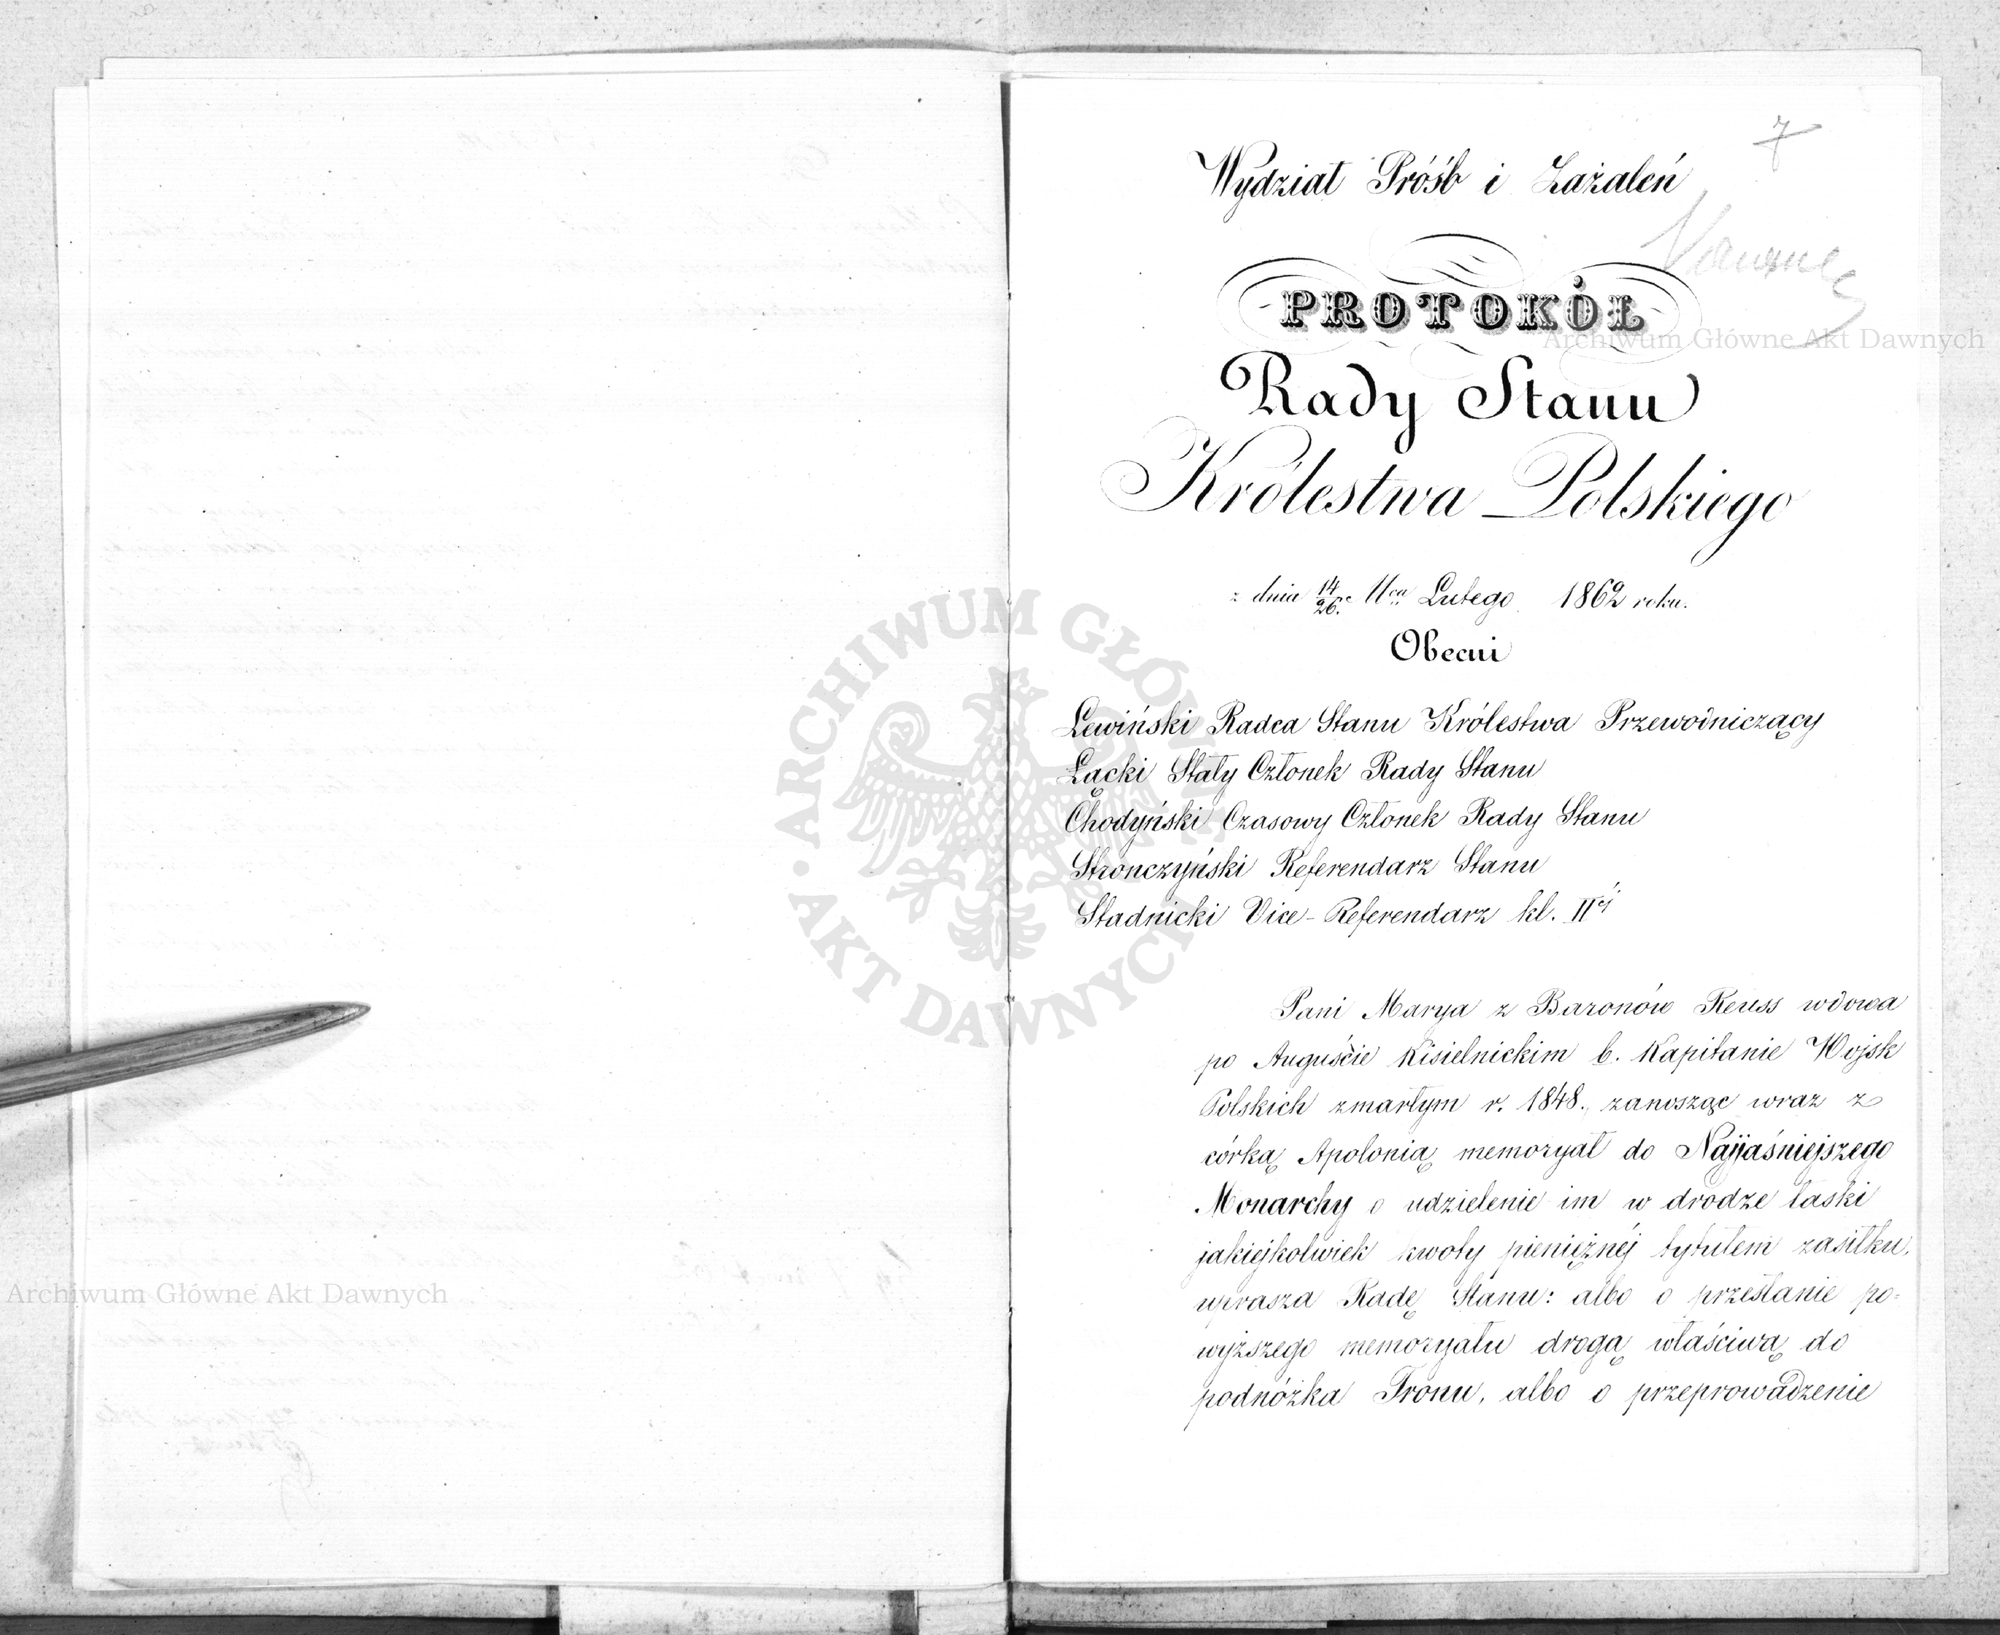 7
Wydział Próśb i Zażaleń
PROTOKÓŁ
Rady Stanu
Królestwa Polskiego
z dnia 14/26. Mca Lutego 1862 roku.
Obecni
Lewiński Radca Stanu Królestwa Przewodniczący
Łącki Stały Członek Rady Stanu
Chodyński Czasowy Członek Rady Stanu
Stronczyński Referendarz Stanu
Stadnicki Vice-Referendarz kl. IIéj
Pani Marya z Baronów Reuss wdowa
po Auguście Kisielnickim b. Kapitanie Wojsk
Polskich zmarłym r. 1848., zanosząc wraz z
córką Apolonią memoryał do Najjaśniejszego
Monarchy o udzielenie im w drodze łaski
jakiejkolwiek kwoty pieniężnéj tytułem zasiłku,
uprasza Radę Stanu: albo o przesłanie po=
wyższego memoryału drogą właściwą do
podnóżka Tronu, albo o przeprowadzenie
Archiwum Główne Akt Dawnych
Archiwum Główne Akt Dawnych
ARCHIWUM GŁÓWNE
AKT DAWNYCH